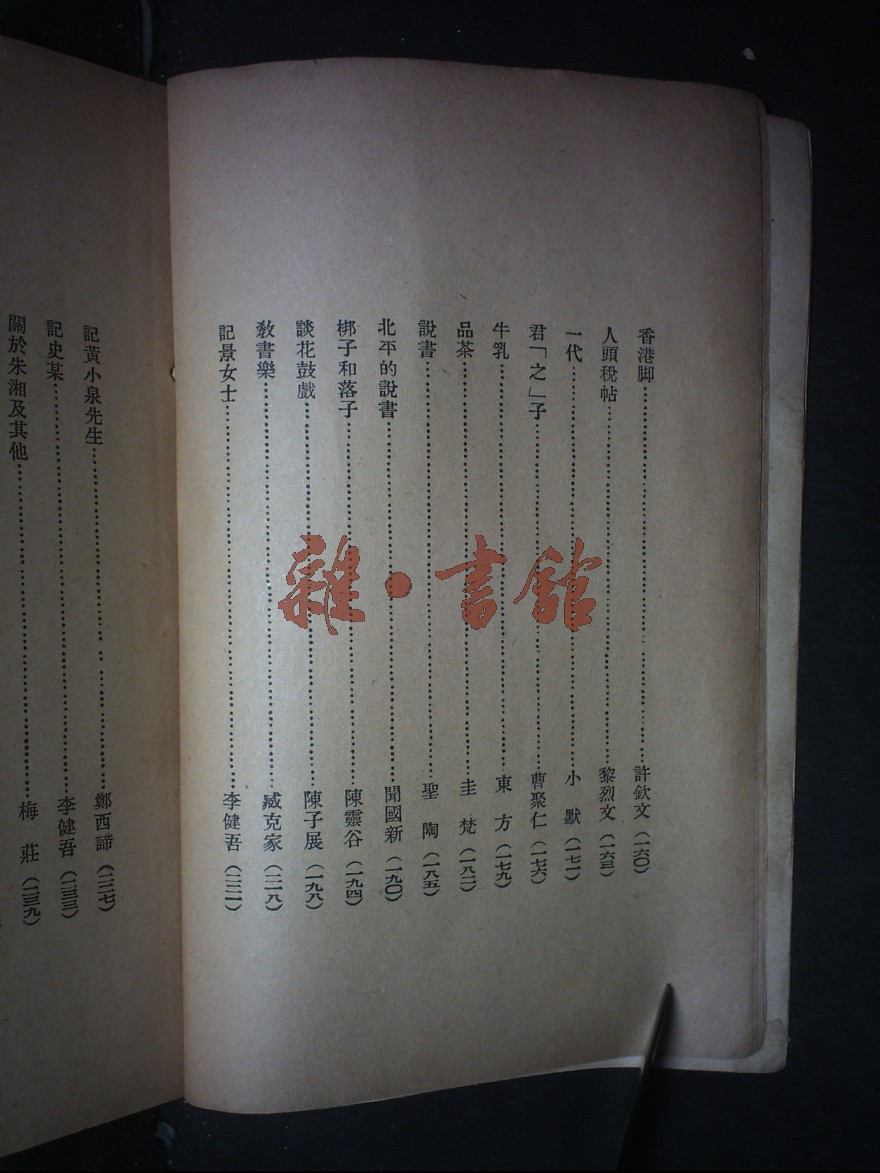 香港脚……許欽文(一六〇)
人頭稅帖……黎烈文(一六三)
一代……小默(一七一)
君「之」子……曹聚仁(一七六)
牛乳……東方(一七九)
品茶……圭梵(一八二)
說書……聖陶(一八五)
北平的說書……聞國新(一九〇)
梆子和落子……陳靈谷(一九四)
談花鼓戲……陳子展(一九八)
敎書樂……臧克家(二一八)
記景女士……李健吾(二二一)
記黃小泉先生……鄭西諦(二二七)
記史某……李健吾(二三三)
關於朱湘及其他……梅莊(二三九)
雜·書館